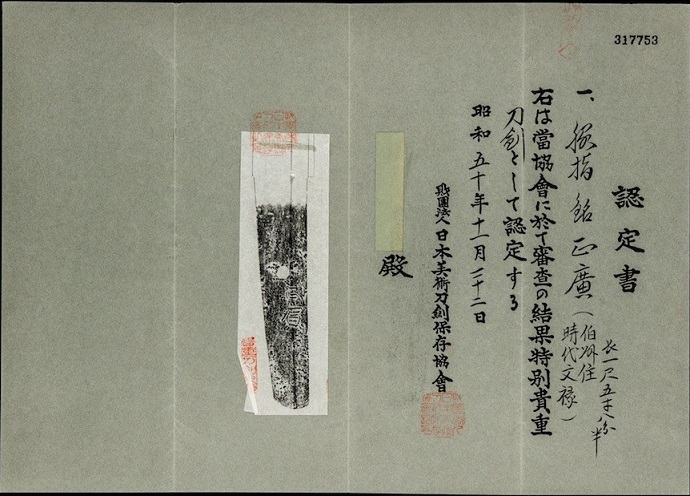 317753
認定書
一、脇指 銘 正廣（伯州住
時代文禄）
長一尺五寸八分半
右は當協會に於て審査の結果特別貴重
刀剣として認定する
昭和五十年十一月二十二日
財團法人日本美術刀剣保存協會
殿